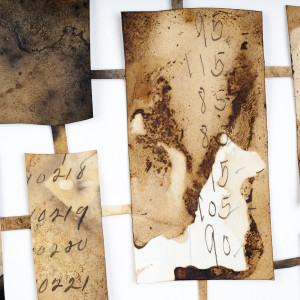 95
115
85
80
15
105
90
10218
10219
10220
10221